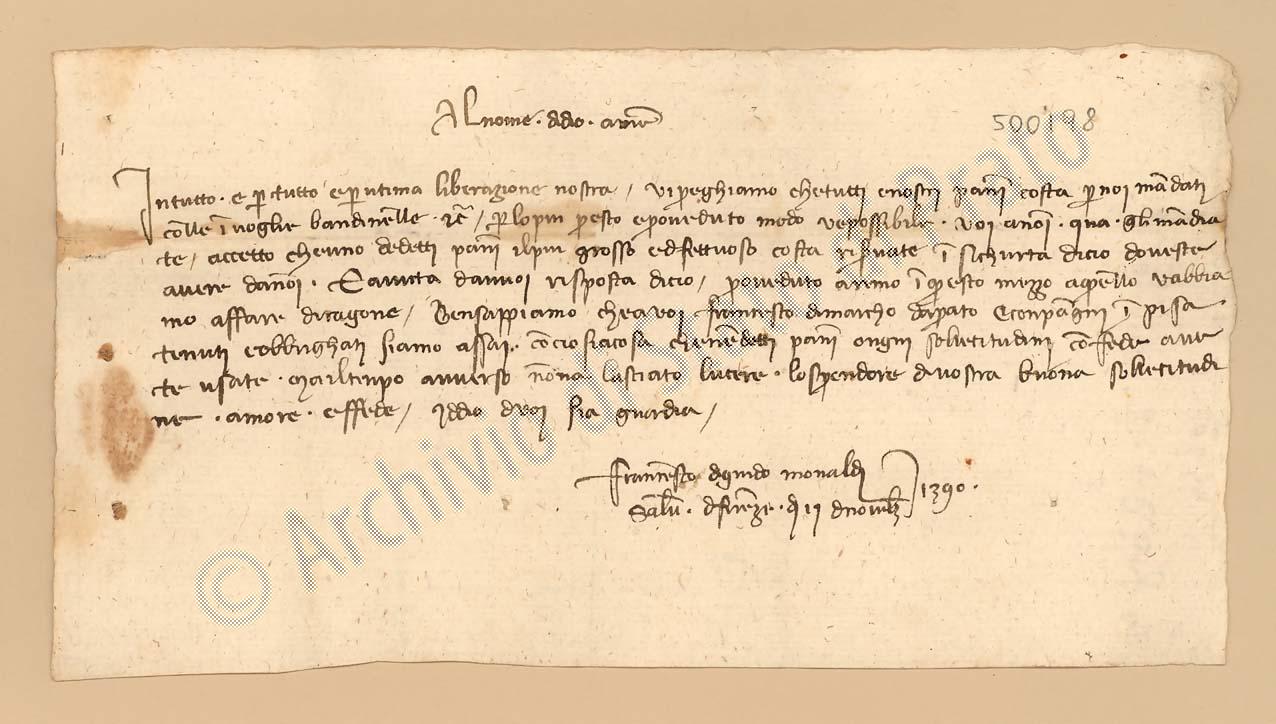 Al nome ddio amē
500198
Intutto · e ꝑ tutto e ꝑ utima liberazione nostra / vi preghiamo che tutti e nostri pāni costa ꝑ noi mādati
colle īvoglie bandinelle · ꝛc̄ / ꝑ lo piu presto e proveduto modo v'e possibile · voi a noi · qua · gli mādia
te / accetto che uno de detti pāni il piu grosso e dfettuoso costa riservate ī sichurta di cio doveste
avere da noi · E avuta da voi risposta di cio / proveduto aremo ī questo mezo a quello v abbia
mo affare di ragone / Ben sappiamo che a voi francescho di marcho da prato e conpāgni ī pisa
tenuti e obbrighati siamo assai · cōcio sia cosa che ne detti pāni ongni sollecitudini cō fede ave
te usate · ma il tenpo avverso nō na lasciato lucere · lo sprendore di vostra buona sollecitudi
ne · amore · e ffede / Iddio di voi sia guardia /
francescho di guido monaldi
Salū · di firenze · dì 11 di novēbr 1390 ·
© Archivio di Stato di Prato